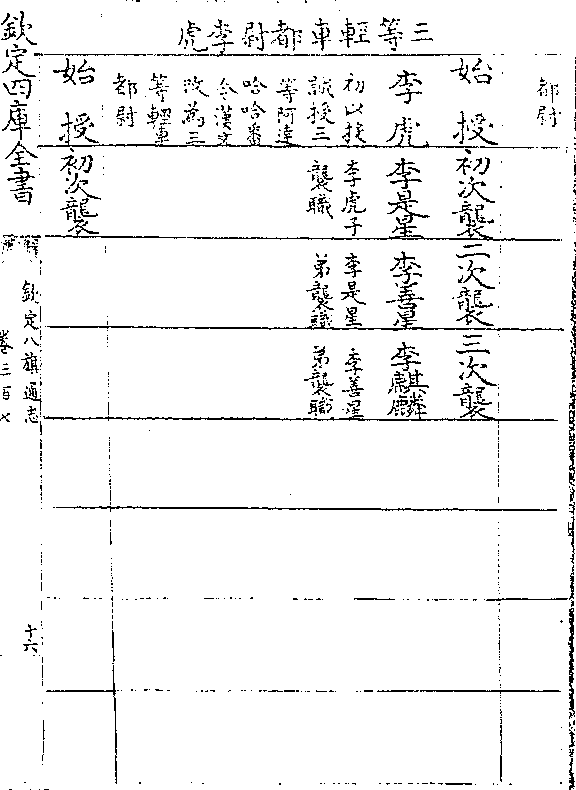 三等輕車都尉李虎
都尉
始授
初次襲
二次襲
三次襲
李虎
李是星
李善星
李麒麟
初以投
誠授三
等阿達
哈哈番
今漢文
改為三
等輕車
都尉
李虎子
襲職
李是星
弟襲職
李善星
弟襲職
始授
初次襲
欽定四庫全書
欽定八旗通志
卷三百七
十六